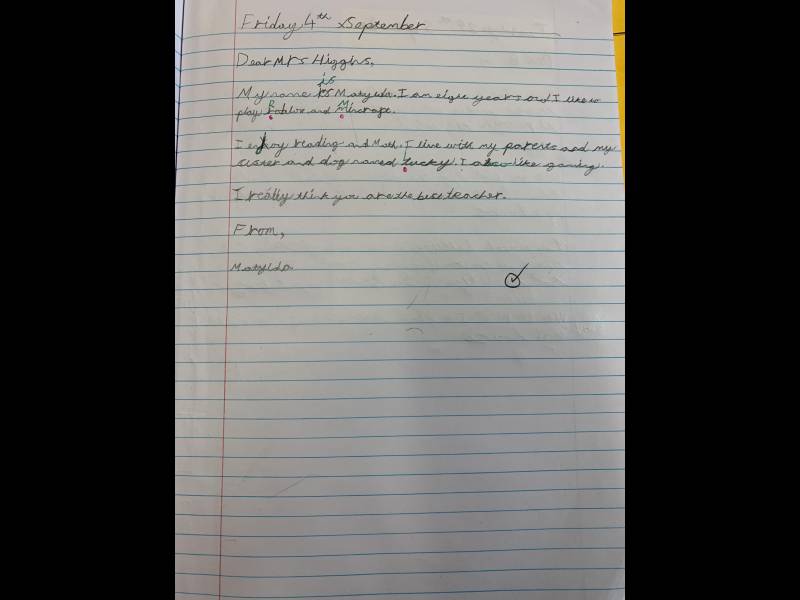 Friday 4th September
Dear Mrs Higgins,
is
My name is Matylda. I am eight years old I like to
R M
play Roblox and Mincraft.
I enjoy reading and Math. I live with my parents and my
sister and dog named Lucky. I also like gaming.
I really think you are the best teacher.
From,
Matylda